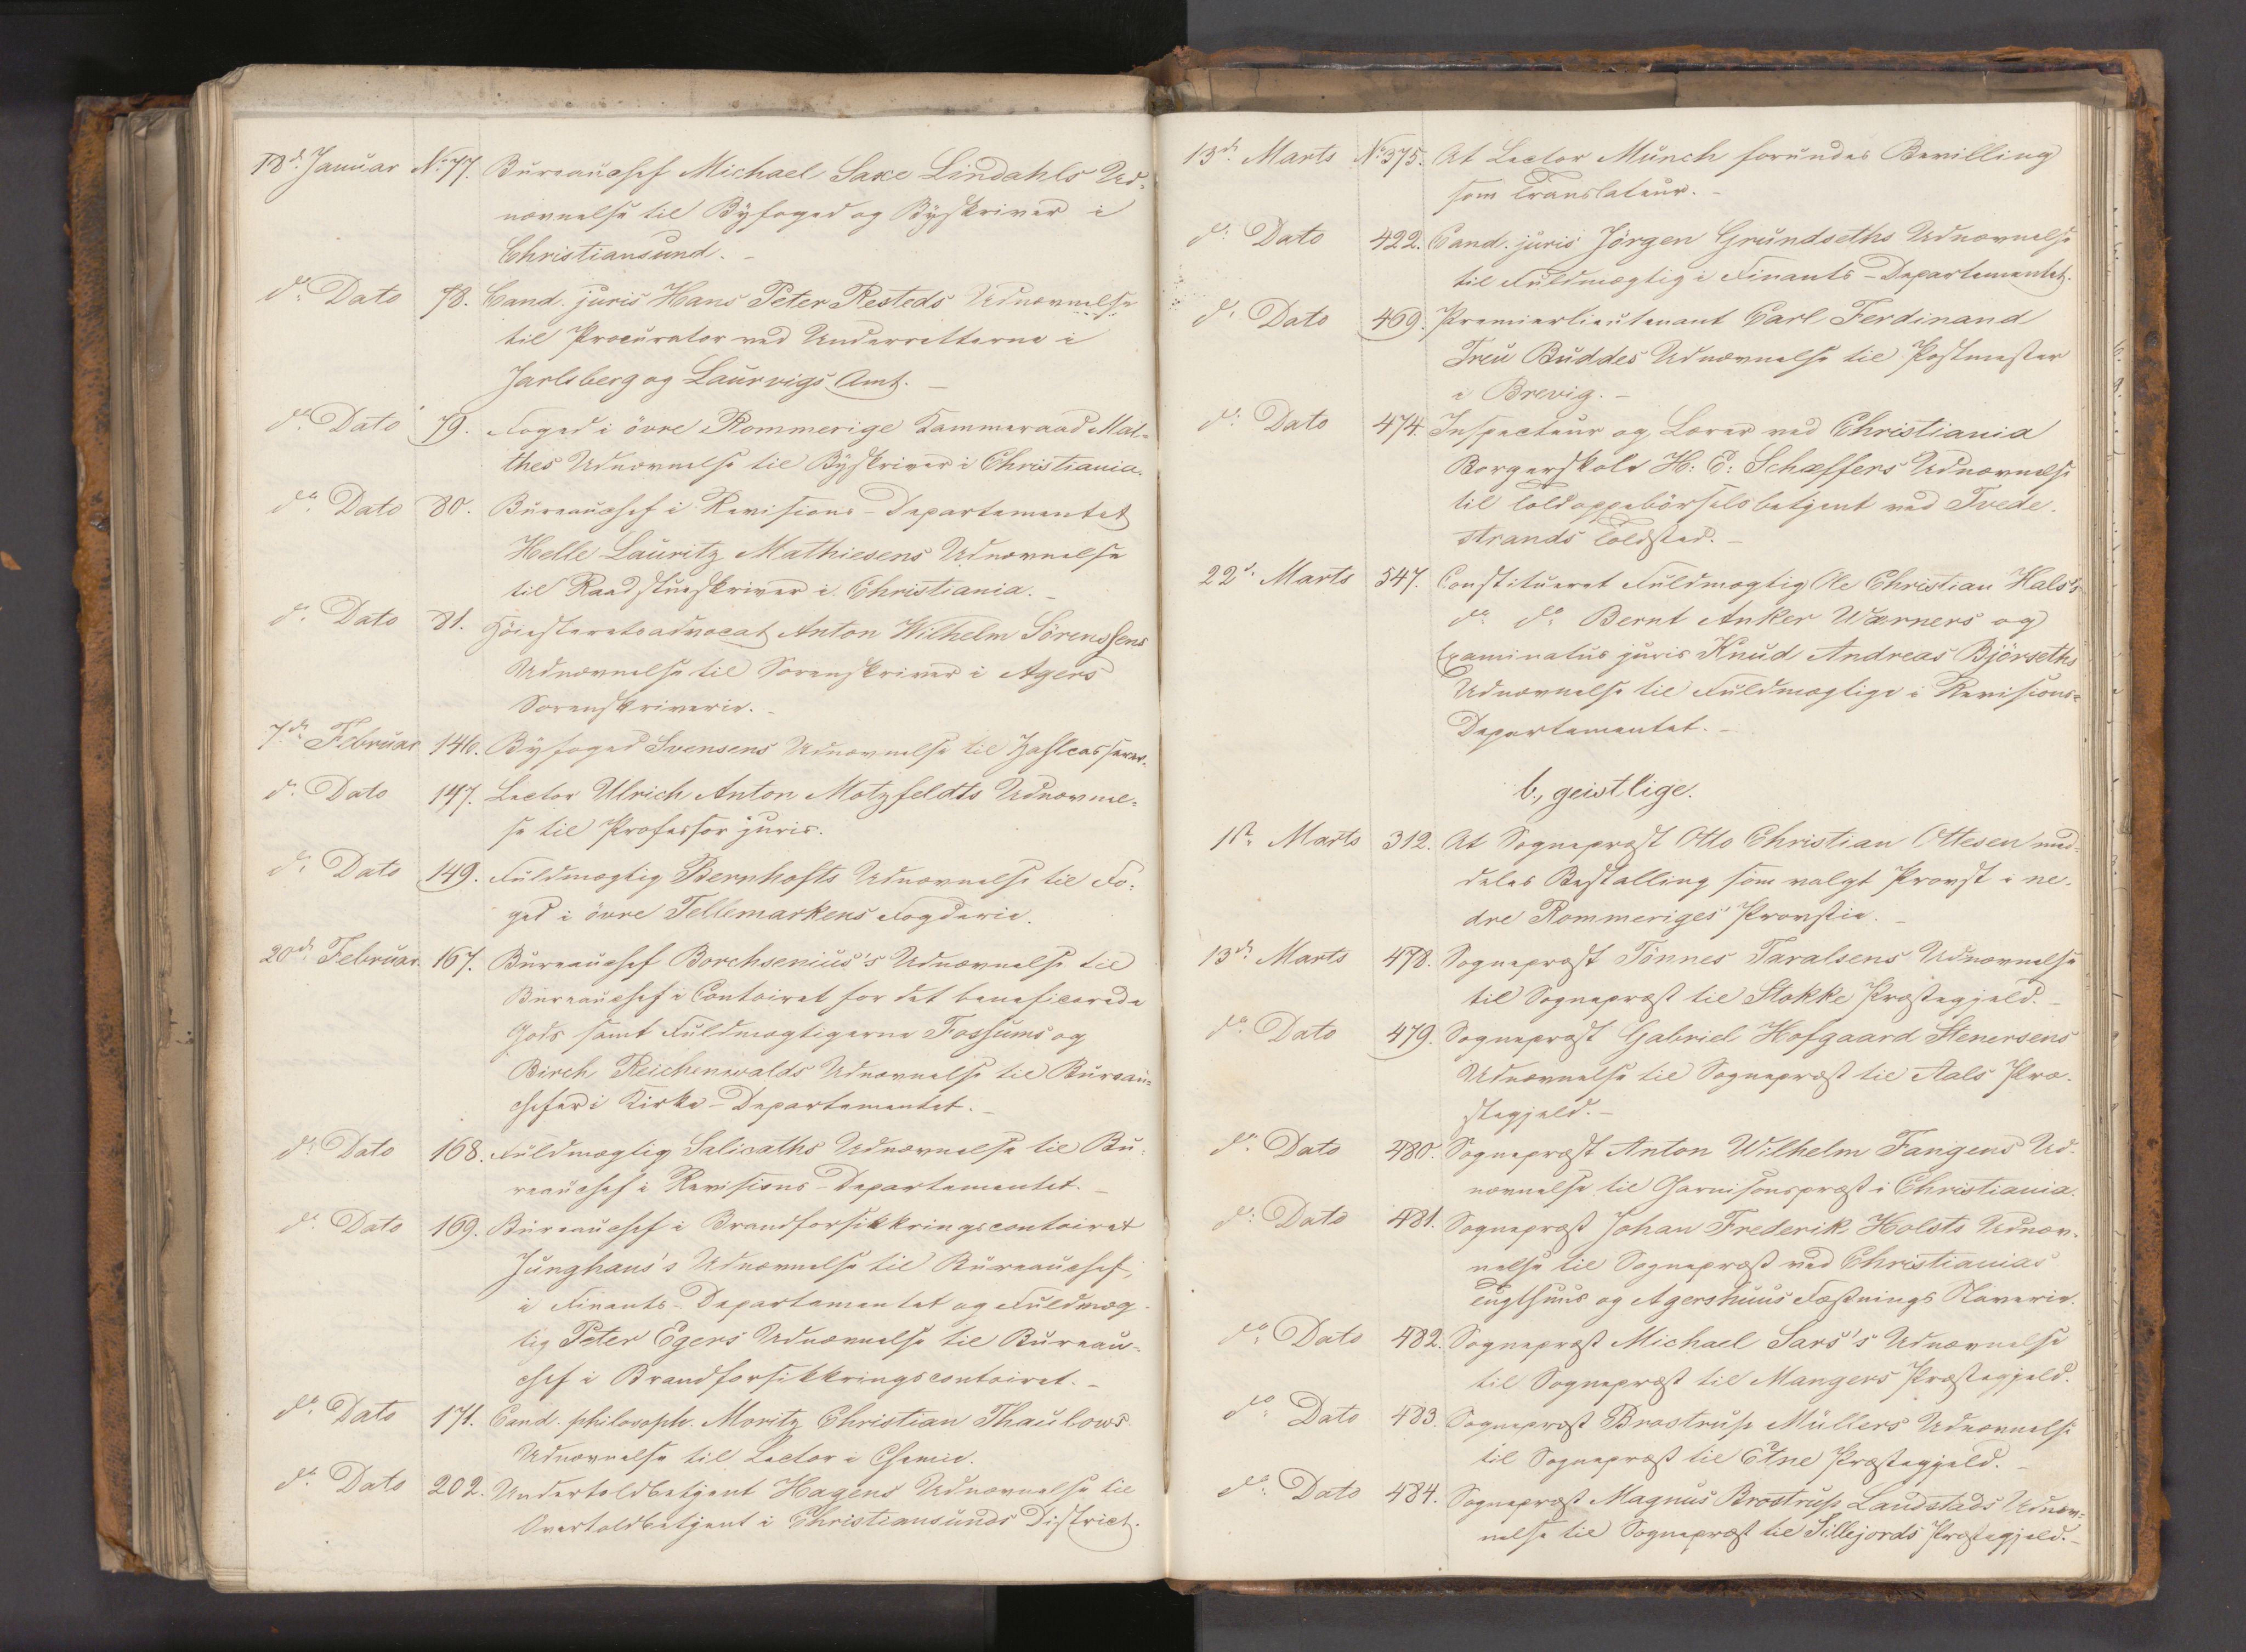 18d. Januar No 77. Bureauchef Michael Saxe Lindahls Ud-
nævnelse til Byfoged og Byskriver i
Christiansund. -
do. Dato 78. Cand. juris Hans Peter Resteds Udnævnelse
til Procurator ved Underretterne i
Jarlsberg og Laurvigs Amt. -
do. Dato 79. Foged i övre Rommerige Kammerraad Mal-
thes Udnævnelse til Byskriver i Christiania.
do. Dato 80. Bureauchef i Revisions-Departementet
Helle Lauritz Mathiesens Udnævnelse
til Raadstueskriver i Christiania. -
do. Dato 81. Höiesteretsadvocat Anton Wilhelm Sörenssens
Udnævnelse til Sorenskriver i Agers
Sorenskriverie. -
7de Februar 146. Byfoged Svensens Udnævnelse til Zahlcasserer.
do. Dato 147. Lector Ulrich Anton Motzfeldts Udnævnel-
se til Professor juris.
do. Dato 149. Fuldmægtig Bernhofts Udnævnelse til Fo-
ged i övre Tellemarkens Fogderie.
20de Februar 167. Bureauchef Borchsenius's Udnævnelse til
Bureauchef i Contoiret for det beneficerede
Gods samt Fuldmægtigerne Fossums og
Birch Reichenwalds Udnævnelse til Bureau-
chefer i Kirke-Departementet. -
do. Dato 168. Fuldmægtig Salicaths Udnævnelse til Bu-
reauchef i Revisions-Departementet. -
do. Dato 169. Bureauchef i Brandforsikkringscontoiret
Junghans's Udnævnelse til Bureauchef
i Finants-Departementet og Fuldmæg-
tig Peter Egers Udnævnelse til Bureau-
chef i Brandforsikkringscontoiret. -
do. Dato 171. Cand. philosoph. Moritz Christian Thaulows
Udnævnelse til Lector i Chemie.
do. Dato 202. Undertoldbetjent Hagens Udnævnelse til
Overtoldbetjent i Christiansunds District.
13de Marts No 375. At Lector Munch forundes Bevilling
som Translateur. -
do. Dato 422. Cand. juris Jörgen Grundseths Udnævnelse
til Fuldmægtig i Finants-Departementet.
do. Dato 469. Premierlieutenant Carl Ferdinand
Treu Buddes Udnævnelse til Postmester
i Brevig. -
do. Dato 474. Inspecteur og Lærer ved Christiania
Borgerskole H: E: Schæffers Udnævnelse
til Toldoppebörselsbetjent ved Tvede-
strands Toldsted. -
22de Marts 547. Constitueret Fuldmægtig Ole Christian Hals's
do. do. Bernt Anker Wærners og
Examinatus juris Knud Andreas Björseths
Udnævnelse til Fuldmægtige i Revisions-
Departementet. -
b., geistlige.
1ste Marts 312. At Sognepræst Otto Christian Ottesen med-
deles Bestalling som valgt Provst i ne-
dre Rommeriges Provstie. -
13de Marts 478. Sognepræst Tönnes Taralsens Udnævnelse
til Sognepræst til Stokke Præstegjeld. -
do. Dato 479. Sognepræst Gabriel Hofgaard Stenersens
Udnævnelse til Sognepræst til Aals Præ-
stegjeld. -
do. Dato 480. Sognepræst Anton Wilhelm Fangens Ud-
nævnelse til Garnisonspræst i Christiania.
do. Dato 481. Sognepræst Johan Frederik Holsts Udnæv-
nelse til Sognepræst ved Christianias
Tugthuus og Agershuus Fæstnings Slaverie.
do. Dato 482. Sognepræst Michael Sars's Udnævnelse
til Sognepræst til Mangers Præstegjeld.
do. Dato 483. Sognepræst Brostrup Müllers Udnævnelse
til Sognepræst til Etne Præstegjeld. -
do. Dato 484. Sognepræst Magnus Brostrup Landstads Udnæv-
nelse til Sognepræst til Sillejords Præstegjeld. -